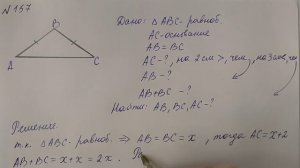 №157
B
A
C
Дано: △ABC - равноб.
AC - основание
AB = BC
AC - ?, на 2 см >, чем
AB - ?
AB + BC - ?
Найти: AB, BC, AC - ?
Решение
т.к. △ABC - равноб. ⇒ AB = BC = x, тогда AC = x + 2
AB + BC = x + x = 2x.